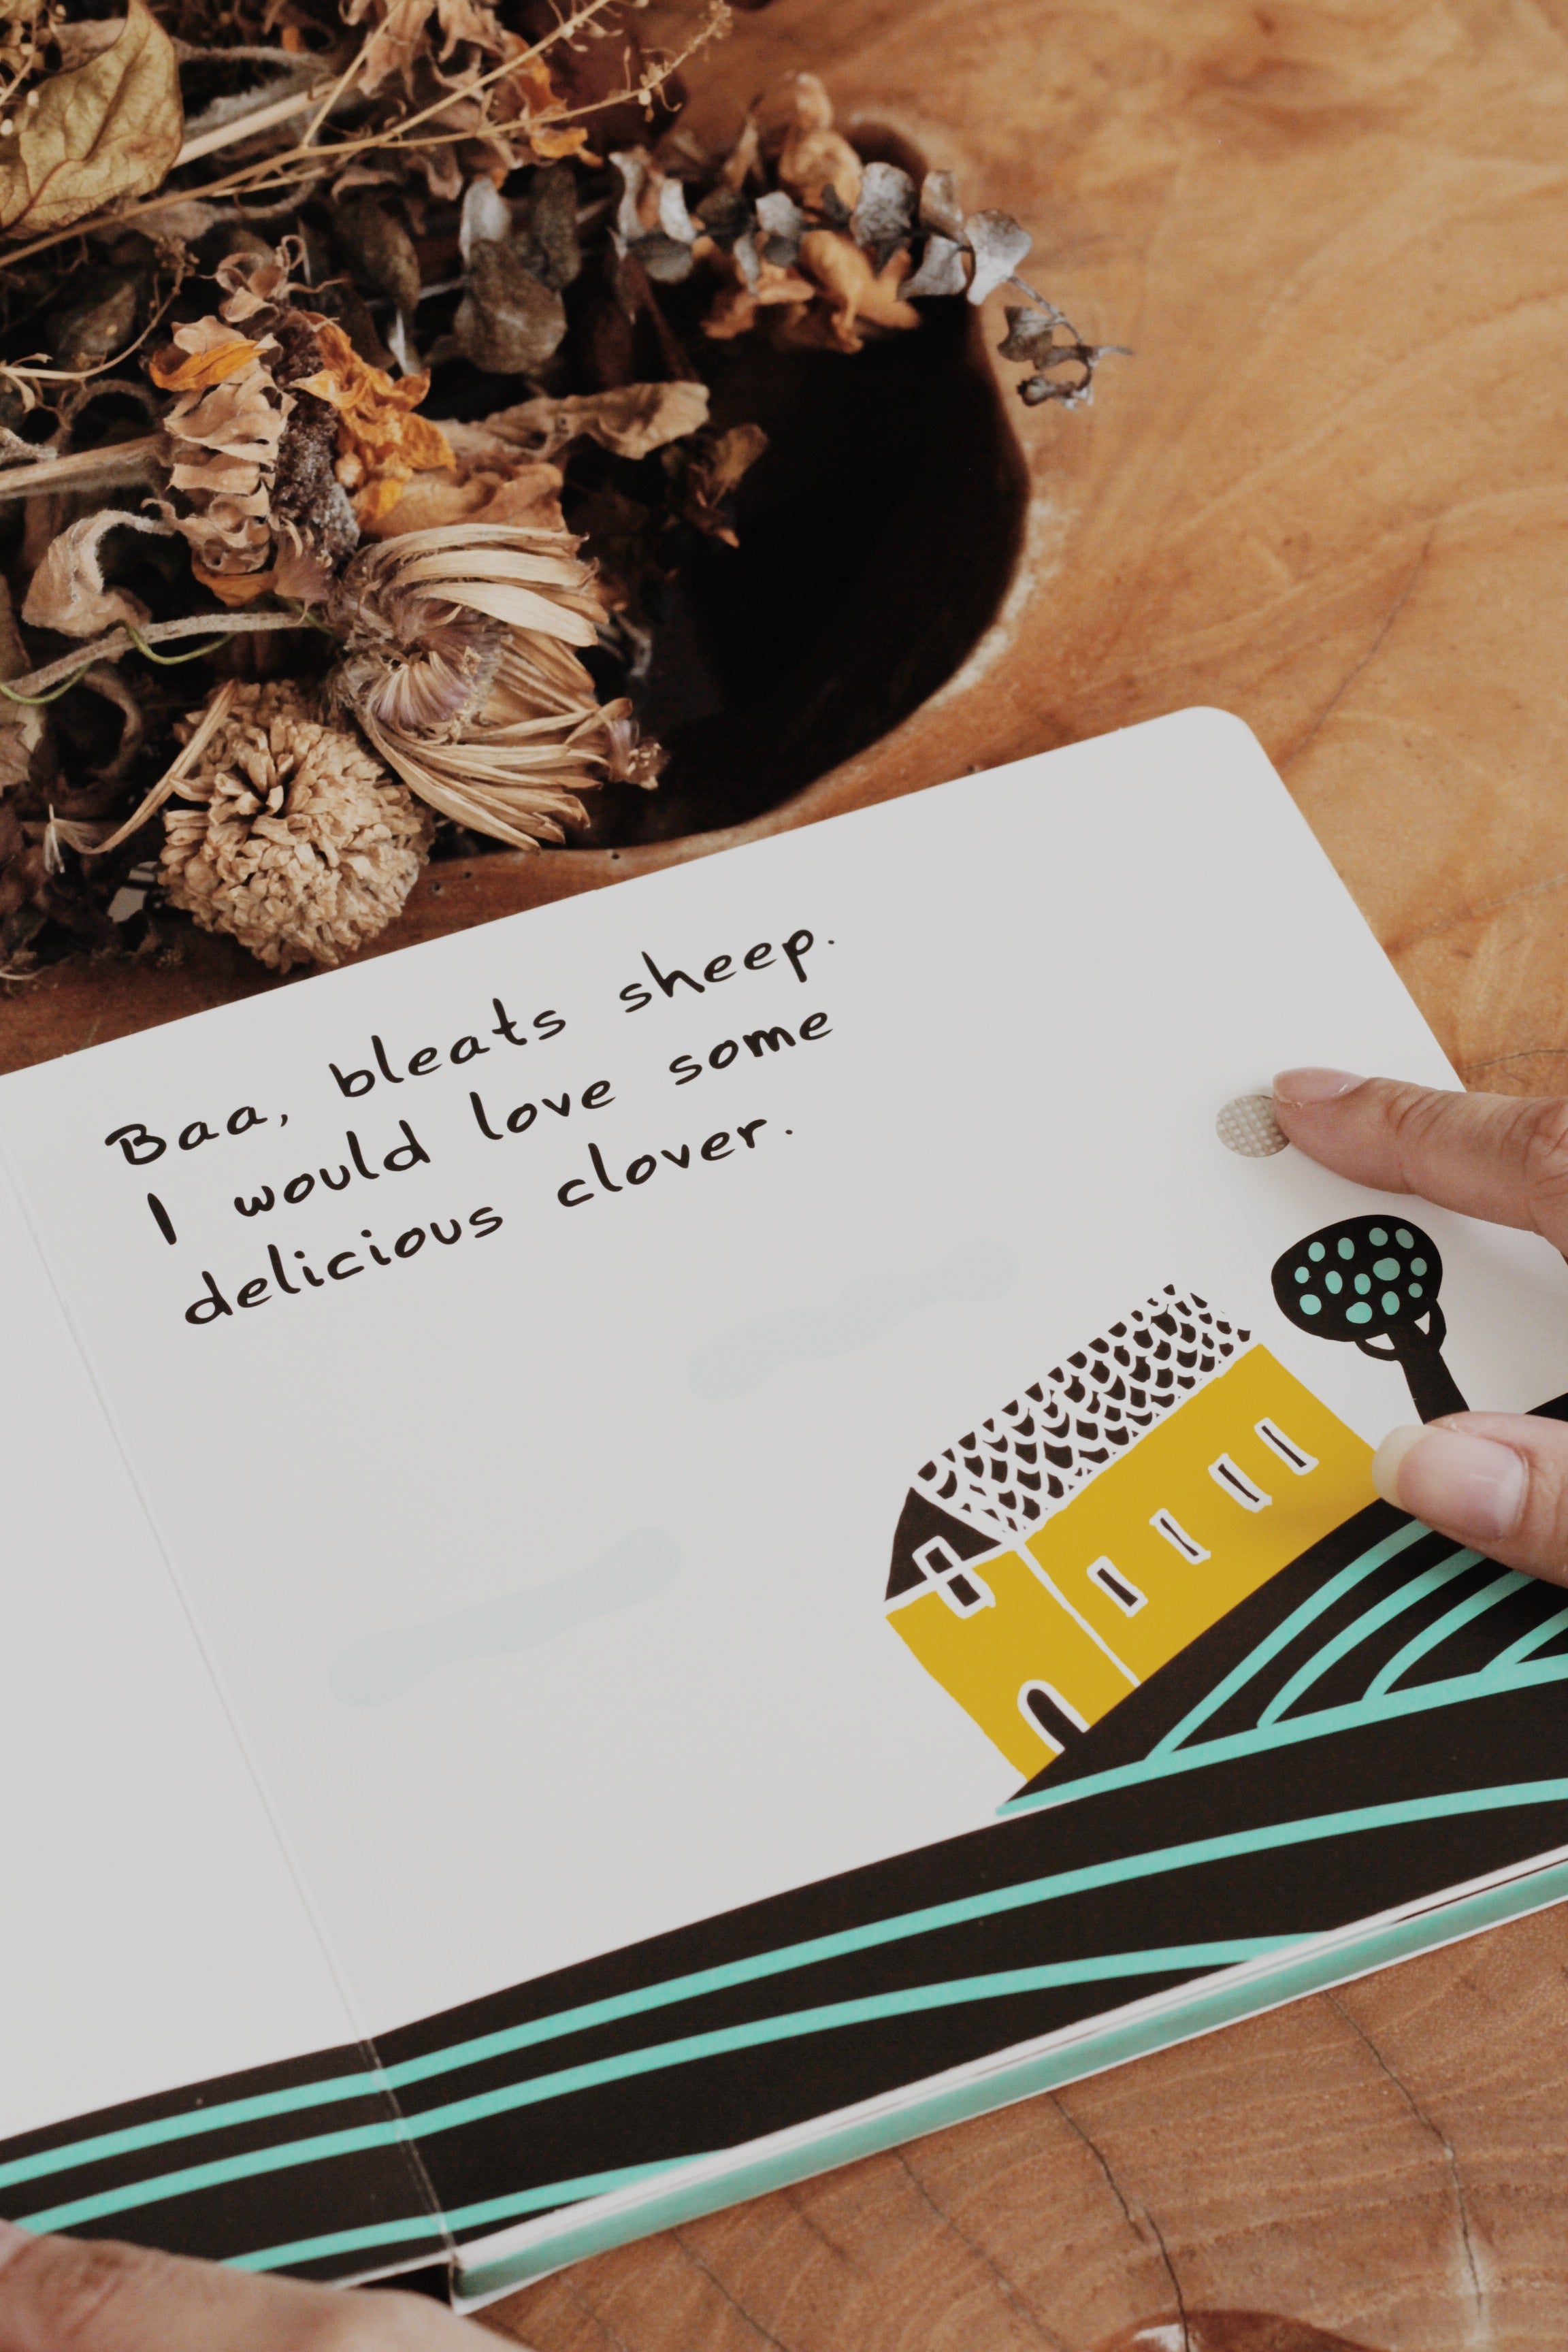 Baa, bleats sheep.
I would love some
delicious clover.